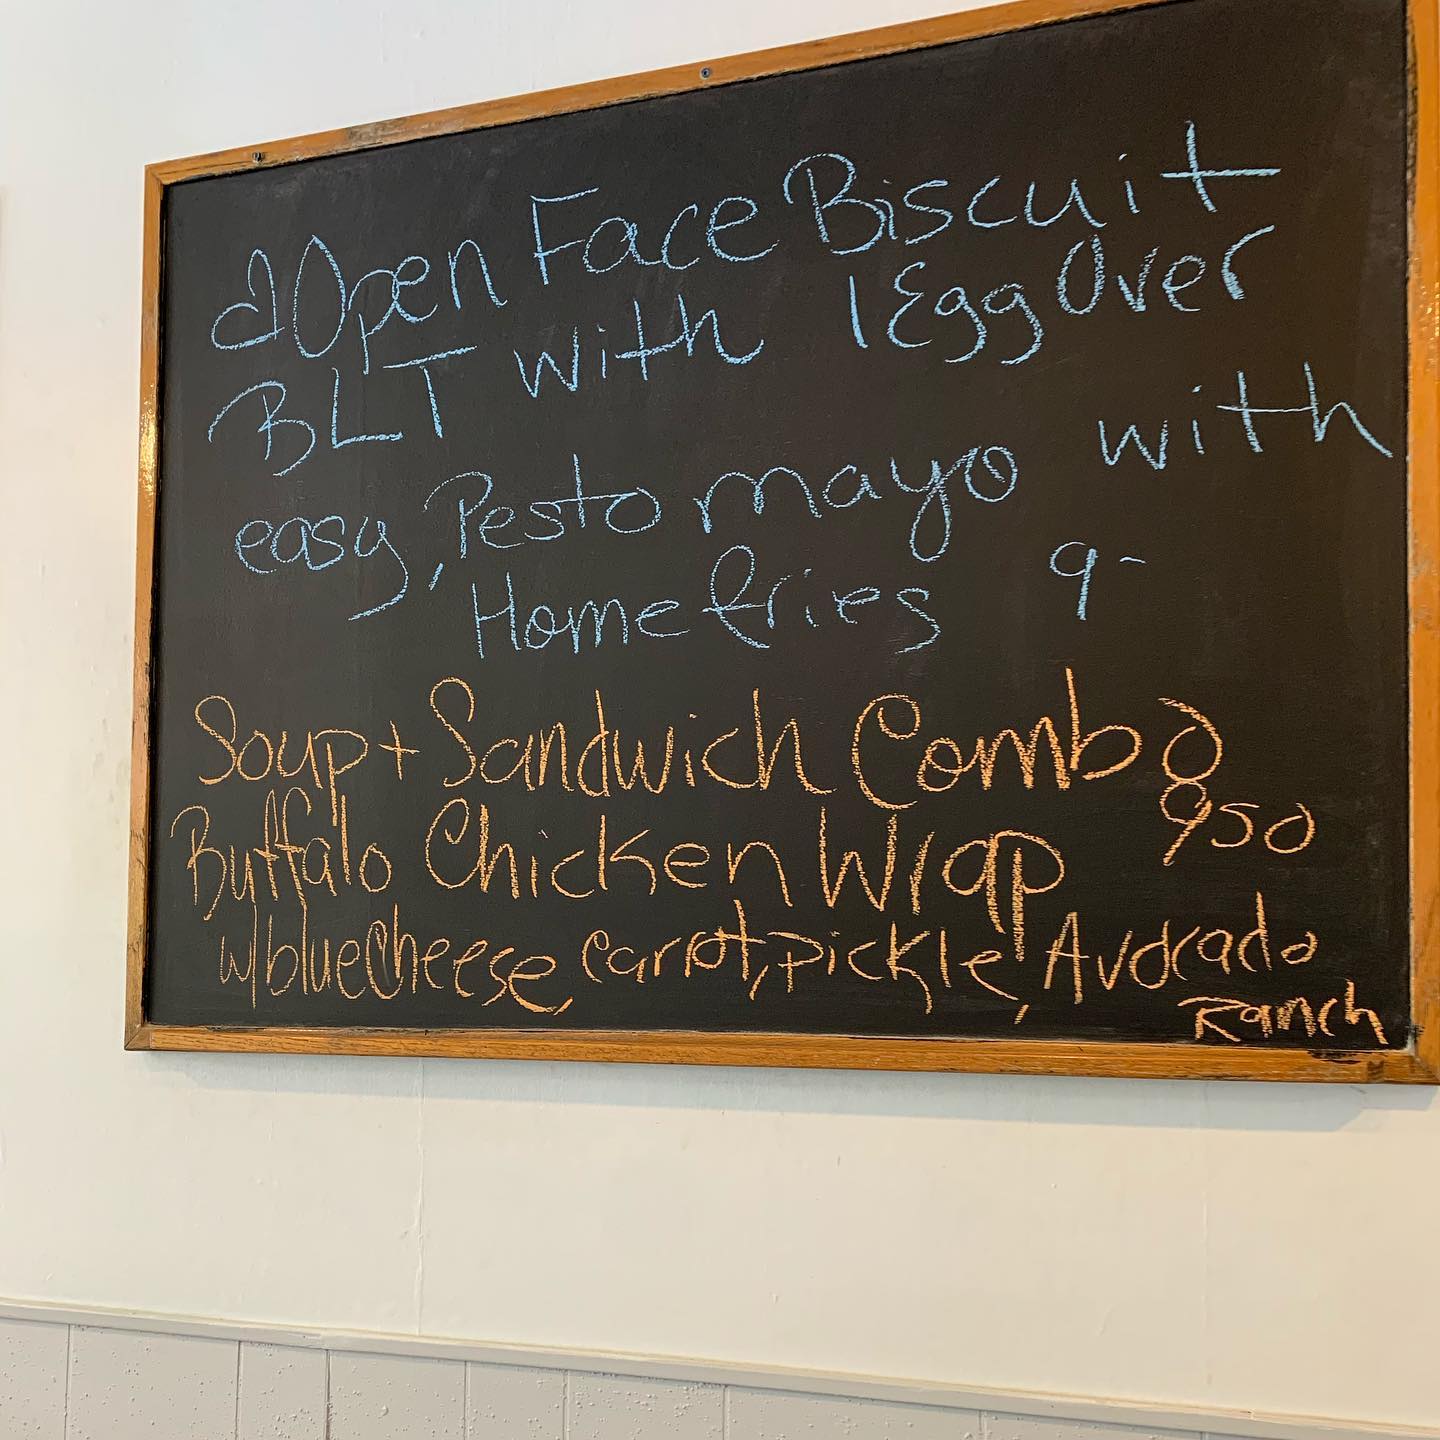 2 Open Face Biscuit
BLT with 1 Egg Over
easy, Pesto mayo with
Home fries 9-
Soup + Sandwich Combo
Buffalo Chicken Wrap 950
w/blue cheese, carrot, pickle, Avocado
Ranch